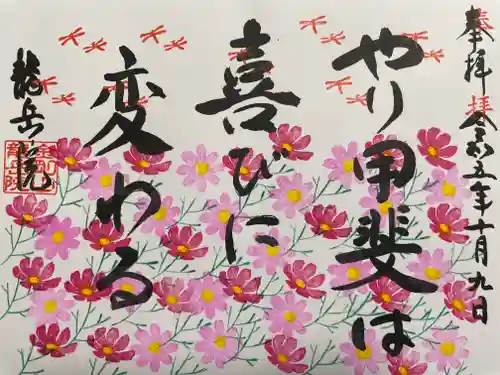 奉拝 令和五年十月九日
やり甲斐は
喜びに
変わる
龍岳院